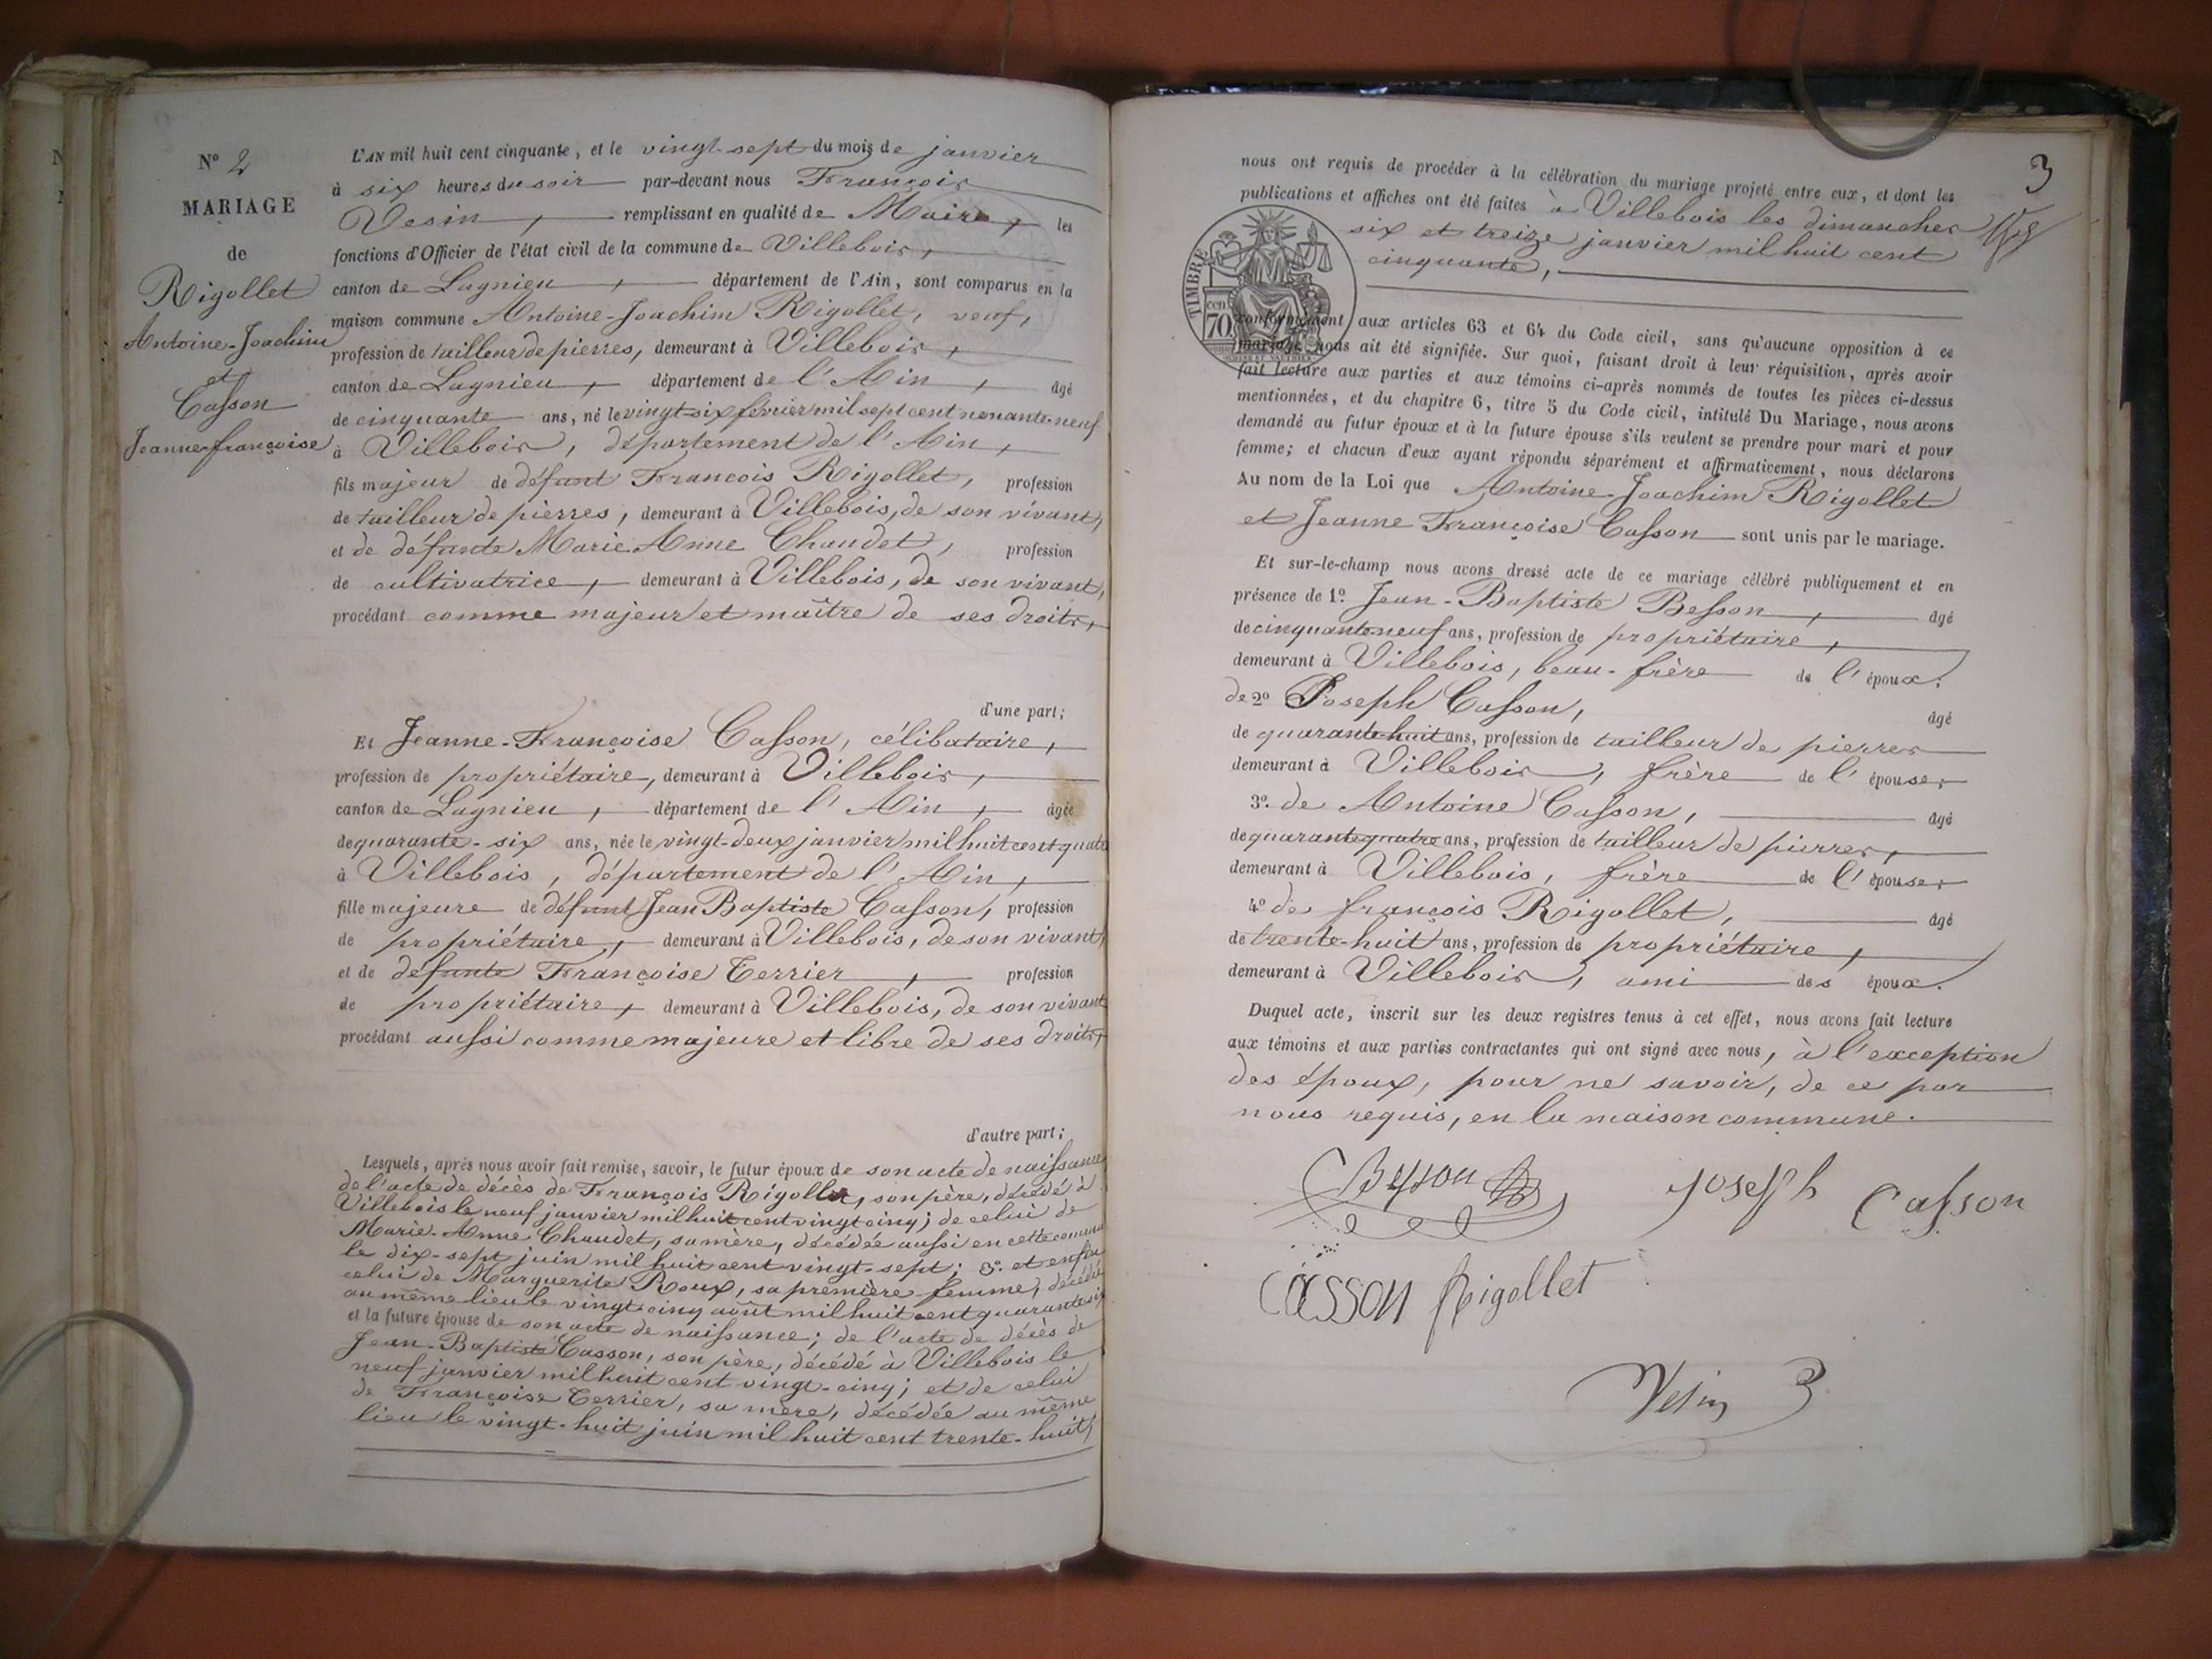 N° 2
MARIAGE
de
Rigollet
Antoine-Joachim
et
Casson
Jeanne-françoise
L'AN mil huit cent cinquante, et le vingt-sept du mois de janvier
à six heures du soir par-devant nous François
Vesin, remplissant en qualité de Maire, les
fonctions d'Officier de l'état civil de la commune de Villebois,
canton de Lagnieu, département de l'Ain, sont comparus en la
maison commune Antoine-Joachim Rigollet, veuf,
profession de tailleur de pierres, demeurant à Villebois,
canton de Lagnieu, département de l'Ain, âgé
de cinquante ans, né le vingt-six février mil sept cent nonante-neuf
à Villebois, département de l'Ain,
fils majeur de défunt François Rigollet, profession
de tailleur de pierres, demeurant à Villebois, de son vivant,
et de défunte Marie Anne Chaudet, profession
de cultivatrice, demeurant à Villebois, de son vivant,
procédant comme majeur et maître de ses droits,
d'une part;
Et Jeanne-Françoise Casson, célibataire,
profession de propriétaire, demeurant à Villebois,
canton de Lagnieu, département de l'Ain, âgée
de quarante-six ans, née le vingt-deux janvier mil huit cent quatre
à Villebois, département de l'Ain,
fille majeure de défunt Jean Baptiste Casson, profession
de propriétaire, demeurant à Villebois, de son vivant,
et de défunte Françoise Terrier, profession
de propriétaire, demeurant à Villebois, de son vivant
procédant aussi comme majeure et libre de ses droits,
d'autre part;
Lesquels, après nous avoir fait remise, savoir, le futur époux de son acte de naissance
de l'acte de décès de François Rigollet, son père, décédé à
Villebois le neuf janvier mil huit cent vingt cinq; de celui de
Marie-Anne Chaudet, sa mère, décédée aussi en cette commune
le dix-sept juin mil huit cent vingt-sept; 3°. et enfin
celui de Marguerite Roux, sa première femme, décédée
au même lieu le vingt-cinq août mil huit cent quarante six
et la future épouse de son acte de naissance; de l'acte de décès de
Jean-Baptiste Casson, son père, décédé à Villebois le
neuf janvier mil huit cent vingt-cinq; et de celui
de Françoise Terrier, sa mère, décédée au même
lieu le vingt-huit juin mil huit cent trente-huit;
3
nous ont requis de procéder à la célébration du mariage projeté entre eux, et dont les
publications et affiches ont été faites à Villebois les dimanches
six et treize janvier mil huit cent
cinquante,
TIMBRE
cen
70
conformément aux articles 63 et 64 du Code civil, sans qu'aucune opposition à ce
mariage nous ait été signifiée. Sur quoi, faisant droit à leur réquisition, après avoir
fait lecture aux parties et aux témoins ci-après nommés de toutes les pièces ci-dessus
mentionnées, et du chapitre 6, titre 5 du Code civil, intitulé Du Mariage, nous avons
demandé au futur époux et à la future épouse s'ils veulent se prendre pour mari et pour
femme; et chacun d'eux ayant répondu séparément et affirmativement, nous déclarons
Au nom de la Loi que Antoine-Joachim Rigollet
et Jeanne Françoise Casson sont unis par le mariage.
Et sur-le-champ nous avons dressé acte de ce mariage célébré publiquement et en
présence de 1° Jean-Baptiste Besson, âgé
de cinquante-neuf ans, profession de propriétaire,
demeurant à Villebois, beau-frère de l'époux;
de 2° Joseph Casson, âgé
de quarante-huit ans, profession de tailleur de pierres
demeurant à Villebois, frère de l'épouse;
3°. de Antoine Casson, âgé
de quarante quatre ans, profession de tailleur de pierres,
demeurant à Villebois, frère de l'épouse;
4° de françois Rigollet, âgé
de trente-huit ans, profession de propriétaire,
demeurant à Villebois, ami des époux.
Duquel acte, inscrit sur les deux registres tenus à cet effet, nous avons fait lecture
aux témoins et aux parties contractantes qui ont signé avec nous, à l'exception
des époux, pour ne savoir, de ce par
nous requis, en la maison commune.
Besson Joseph Casson
Casson Rigollet
Vesin